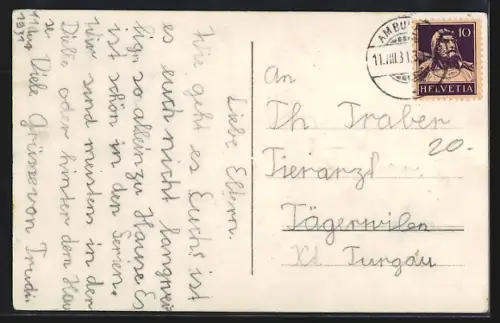 Liebe Eltern.
Wie geht es Euch? ist
es euch nicht langwei
lig, so allein zu Hause Es
ist schön in den Ferien.
Wir sind meistens in der
oder hinter dem Hau
se. Viele Grüsse von Trudi.
11 Aug
1931
AMBUL
11.VIII.31.
10
HELVETIA
An
Th Traber
Tierarzt
Tägerwilen
Kt Turgau
20.-